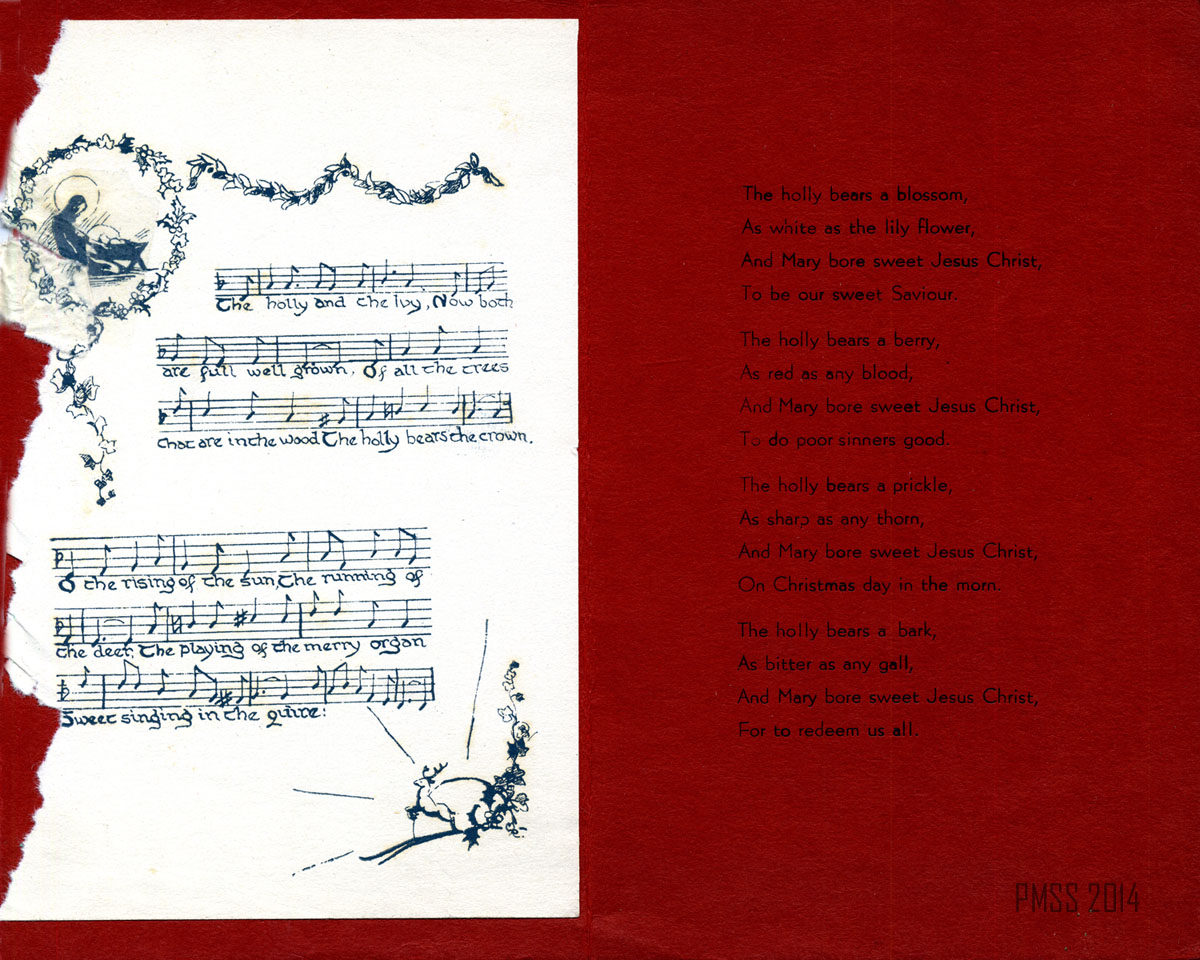 The holly and the Ivy, Now both
are full well grown, Of all the trees
that are in the wood The holly bears the crown.
O the rising of the sun, The running of
the deer, The playing of the merry organ
Sweet singing in the quire:
The holly bears a blossom,
As white as the lily flower,
And Mary bore sweet Jesus Christ,
To be our sweet Saviour.
The holly bears a berry,
As red as any blood,
And Mary bore sweet Jesus Christ,
To do poor sinners good.
The holly bears a prickle,
As sharp as any thorn,
And Mary bore sweet Jesus Christ,
On Christmas day in the morn.
The holly bears a bark,
As bitter as any gall,
And Mary bore sweet Jesus Christ,
For to redeem us all.
PMSS 2014